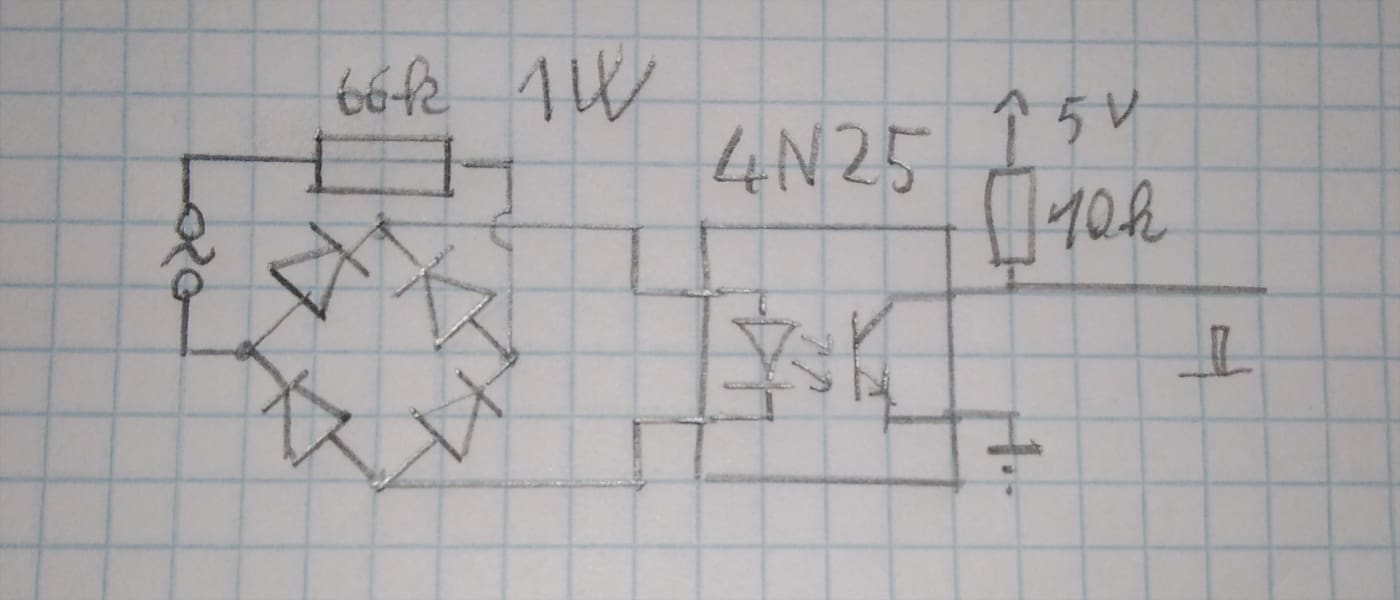 66k 1W
4N25
5V
10k